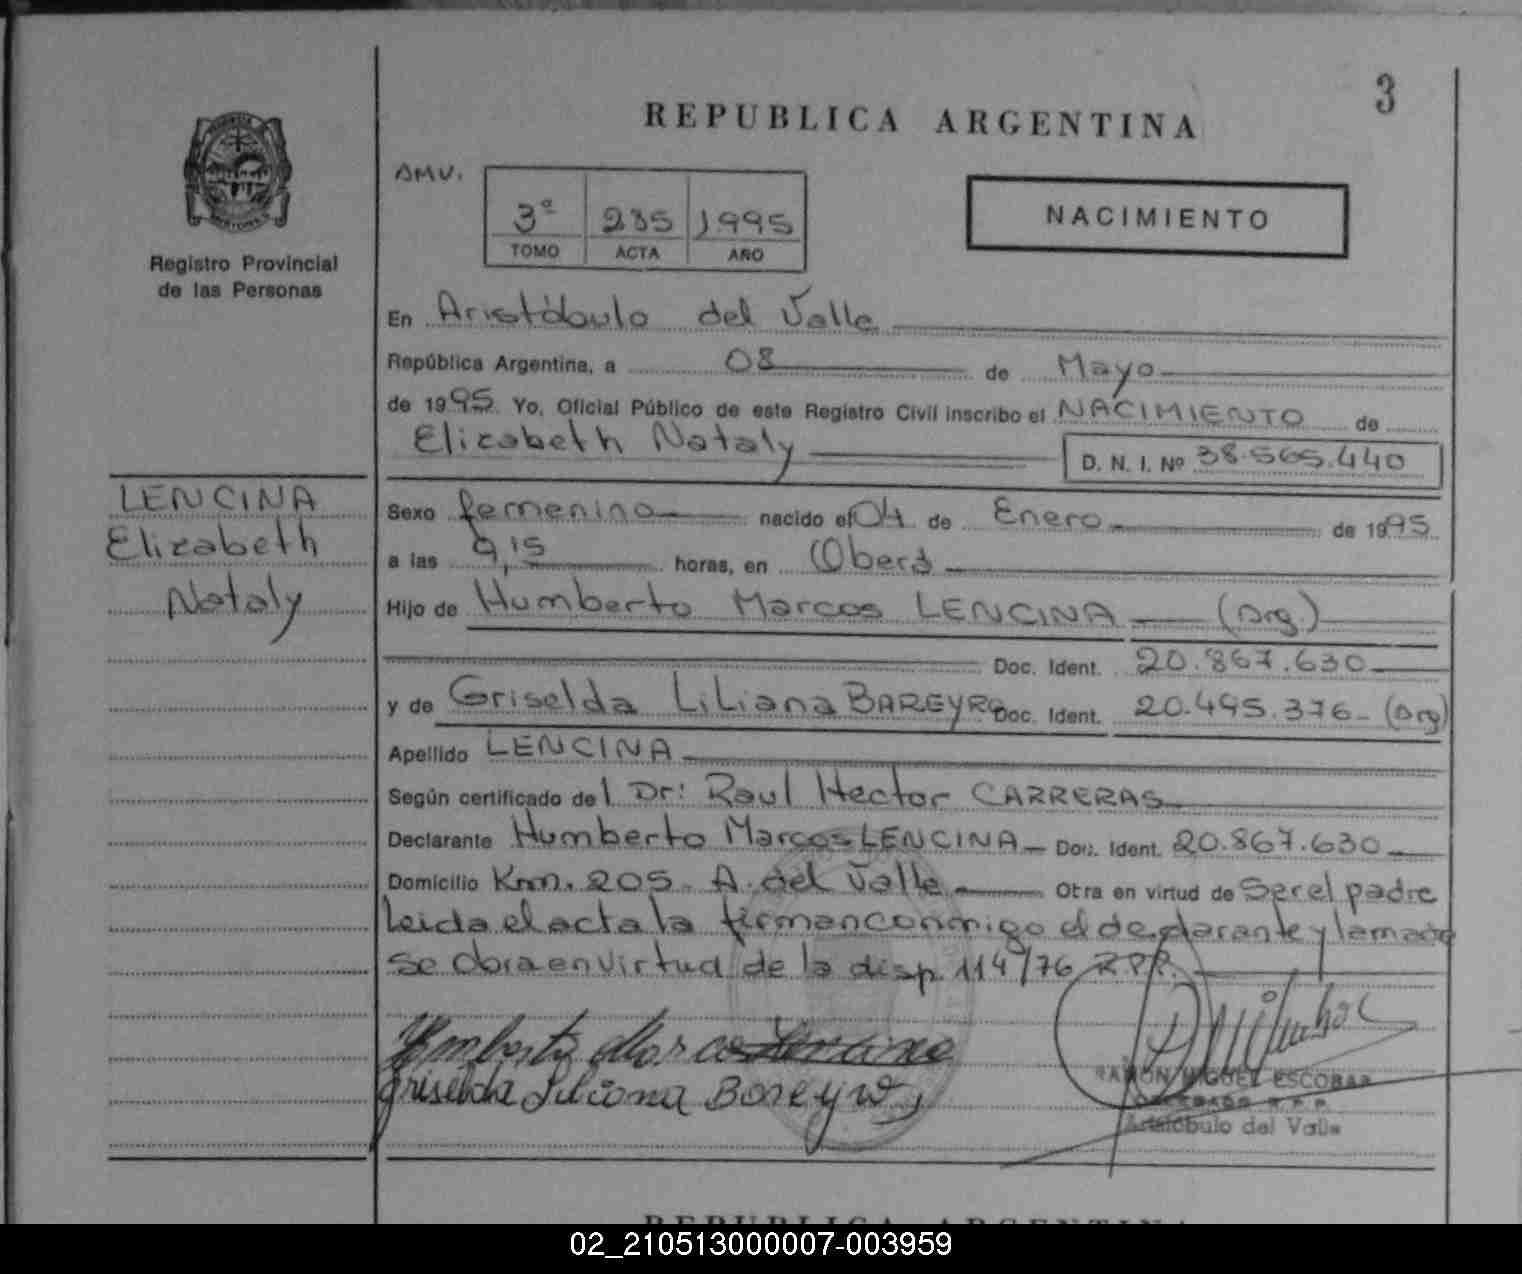 3
REPUBLICA ARGENTINA
AMV.
3ª 235 1995
TOMO ACTA AÑO
NACIMIENTO
Registro Provincial
de las Personas
En Aristóbulo del Valle
República Argentina, a 08 de Mayo
de 1995. Yo, Oficial Público de este Registro Civil inscribo el NACIMIENTO de
Elizabeth Nataly D. N. I. Nº 38.565.440
LENCINA
Elizabeth
Nataly
Sexo femenino nacido el 04 de Enero de 1995
a las 9,15 horas, en Oberá
Hijo de Humberto Marcos LENCINA (Arg.)
Doc. Ident. 20.867.630
y de Griselda Liliana BAREYRO Doc. Ident. 20.495.376- (Arg)
Apellido LENCINA
Según certificado del Dr: Raul Hector CARRERAS
Declarante Humberto Marcos LENCINA Doc. Ident. 20.867.630
Domicilio Km. 205 A. del Valle Otra en virtud de Ser el padre
Leida el acta la firman conmigo el declarante y la madre
se obra en virtud de la disp. 114/76 R.P.P.
Humberto Marcos Lencina
Griselda Liliana Bareyro
RAMON MIGUEL ESCOBAR
Aristóbulo del Valle
REPUBLICA ARGENTINA
02_210513000007-003959